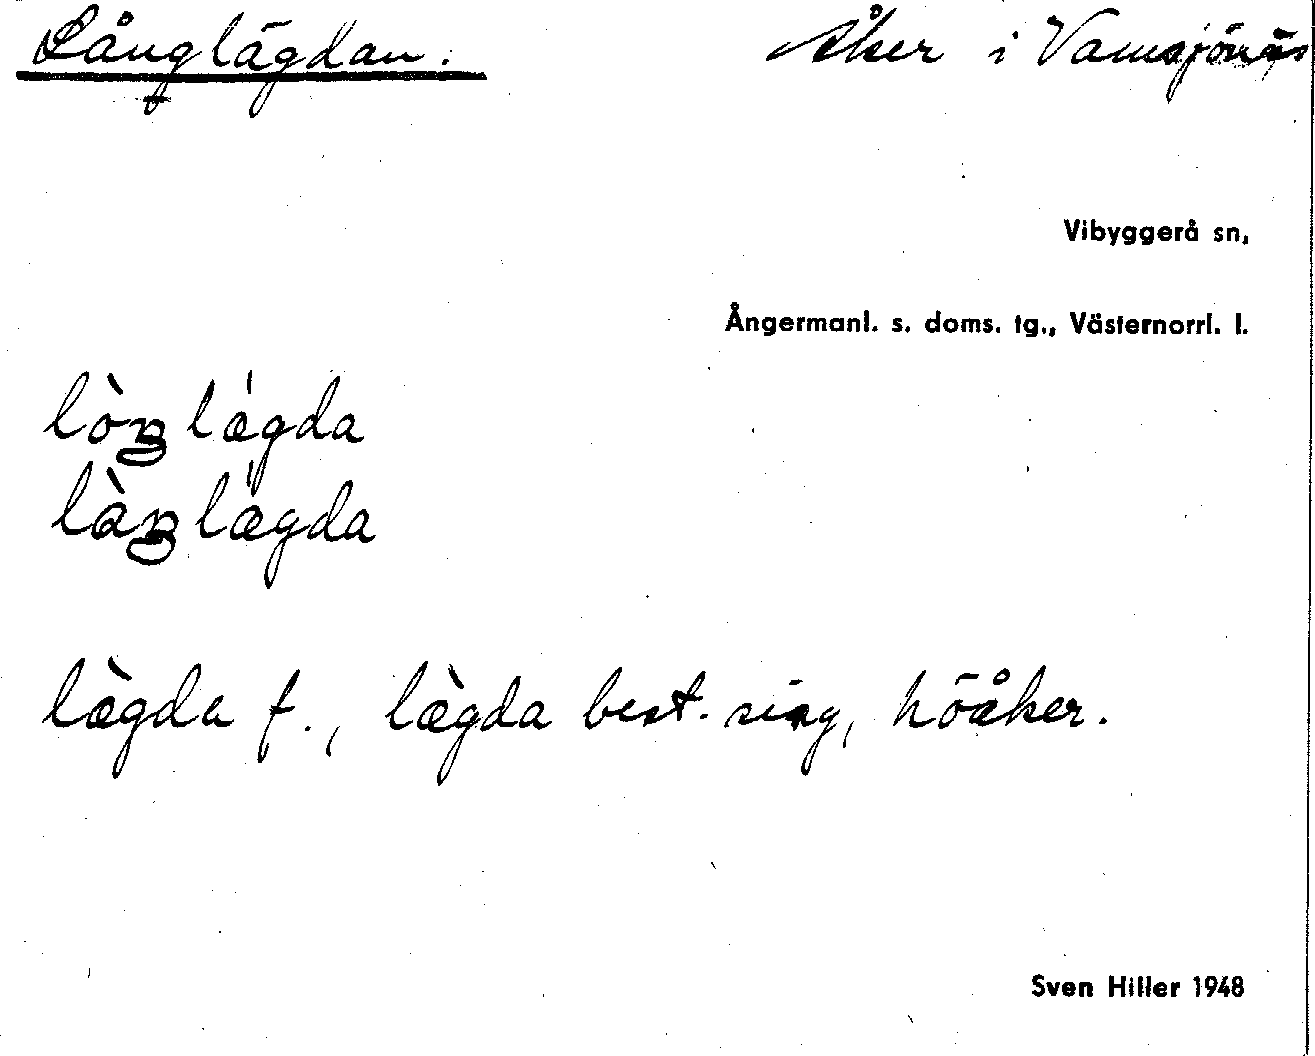 Långlägdan. Åker i Vamsjönäs
Vibyggerå sn,
Ångermanl. s. doms. tg., Västernorrl. l.
lòŋlǽgda
làŋlǽgda
læ̀gda f., læ̀gda best. sing, höåker.
Sven Hiller 1948